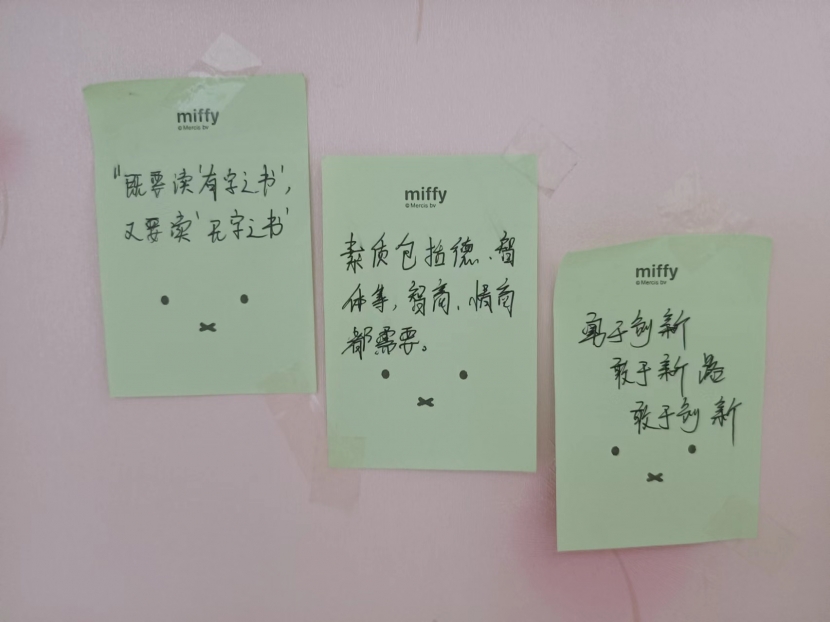 miffy
© Mercis bv
"既要读'有字之书',
又要读'无字之书'
miffy
© Mercis bv
素质包括德、智
体等,智商、情商
都需要。
miffy
© Mercis bv
于创新
敢于新
敢于创新